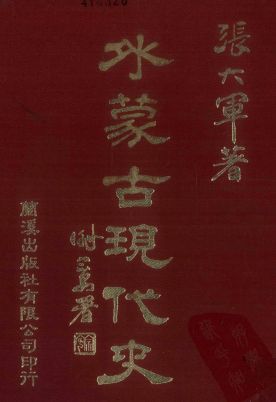 張大軍著
外蒙古現代史
蘭溪出版社有限公司印行